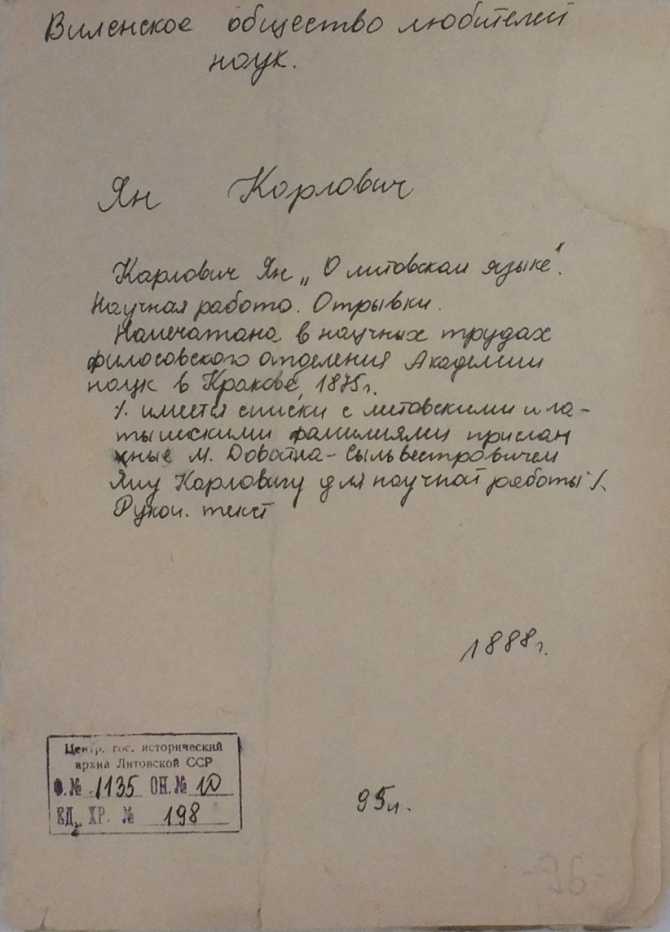 Виленское общество любителей
наук.
Ян Карлович
Карлович Ян „О литовском языке".
Научная работа. Отрывки.
Напечатана в научных трудах
философского отделения Академии
наук в Кракове, 1875г.
/. имеется списки с литовскими и ла-
тышскими фамилиями прислан
ные М. Довойна-Сыльвестровичем
Яну Карловичу для научной работы /.
Рукоп. текст
1888г.
Центр. гос. исторический
архив Литовской ССР
Ф.№ 1135 ОН.№ 10
ЕД. ХР. № 198
95л.
-96-